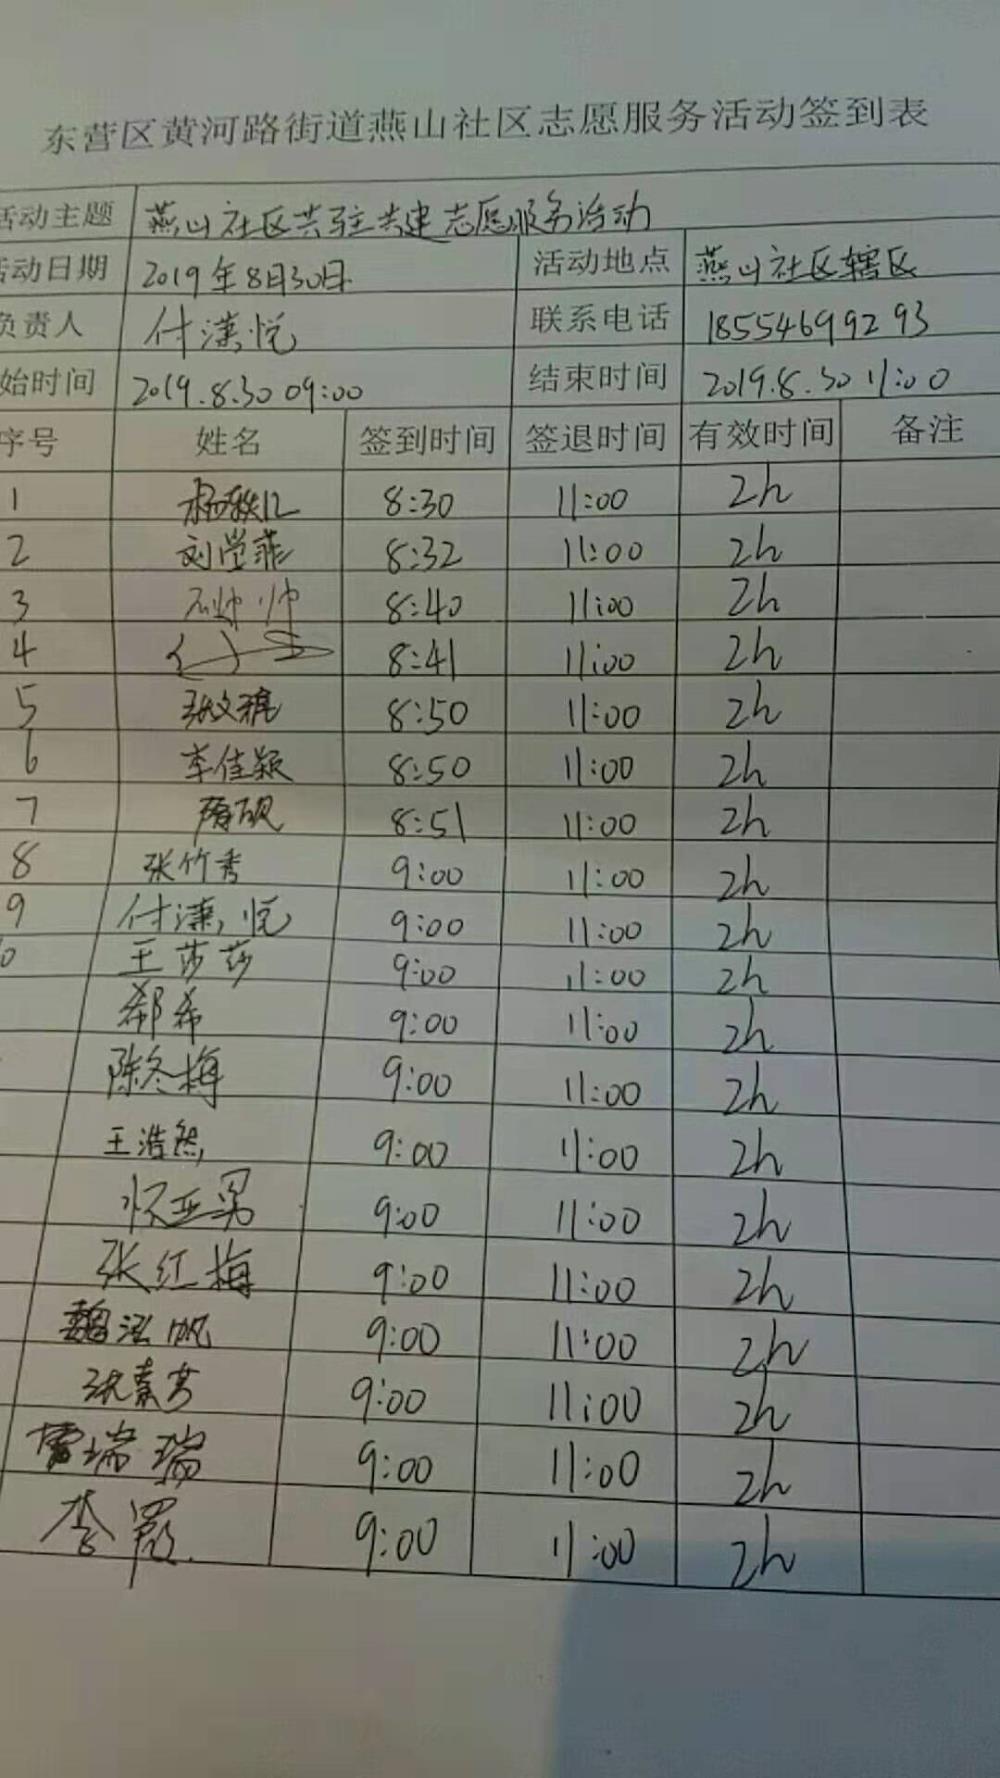 东营区黄河路街道燕山社区志愿服务活动签到表
活动主题 燕山社区共驻共建志愿服务活动
活动日期 2019年8月30日 活动地点 燕山社区辖区
负责人 付潇悦 联系电话 18554699293
始时间 2019.8.30 09:00 结束时间 2019.8.30 11:00
序号 姓名 签到时间 签退时间 有效时间 备注
1 8:30 11:00 2h
2 刘莹菲 8:32 11:00 2h
3 8:40 11:00 2h
4 8:41 11:00 2h
5 8:50 11:00 2h
6 李佳颖 8:50 11:00 2h
7 8:51 11:00 2h
8 张竹秀 9:00 11:00 2h
9 付潇悦 9:00 11:00 2h
0 王莎莎 9:00 11:00 2h
郗希 9:00 11:00 2h
陈冬梅 9:00 11:00 2h
王浩然 9:00 11:00 2h
怀亚男 9:00 11:00 2h
张红梅 9:00 11:00 2h
魏泓帆 9:00 11:00 2h
张素芳 9:00 11:00 2h
雷瑞瑞 9:00 11:00 2h
李 9:00 11:00 2h